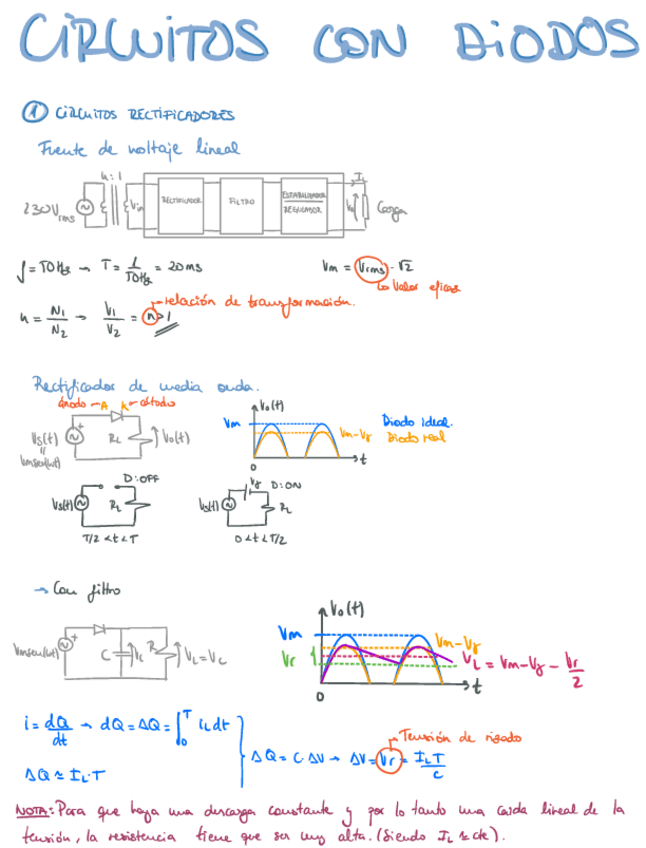 CIRCUITOS CON DIODOS
① CIRCUITOS RECTIFICADORES
Fuente de voltaje lineal
n:1
230Vrms Vin RECTIFICADOR FILTRO ESTABILIZADOR REGULADOR IL VL Carga
f = 50Hz → T = 1/50Hz = 20ms
Vm = Vrms · √2
↳ Valor eficaz
n = N1/N2 → V1/V2 = n > 1
relación de transformación.
Rectificador de media onda.
ánodo ← A K → cátodo
Vs(t) = Vmsen(wt) + RL Vo(t)
Vo(t) Vm Vm-Vγ 0 t
Diodo ideal.
Diodo real
D:OFF
Vs(t) RL
T/2 < t < T
Vγ D:ON
Vs(t) RL
0 < t < T/2
→ Con filtro
Vmsen(wt) + C VC R VL = VC
Vo(t) Vm Vm-Vγ Vr 0 t
VL = Vm - Vγ - Vr/2
i = dQ/dt → dQ = ΔQ = ∫₀ᵀ iL dt
ΔQ ≈ IL·T
ΔQ = C·ΔV → ΔV = Vr = ILT/C
Tensión de rizado
NOTA: Para que haya una descarga constante y por lo tanto una caída lineal de la
tensión, la resistencia tiene que ser muy alta. (Siendo IL ≈ cte).